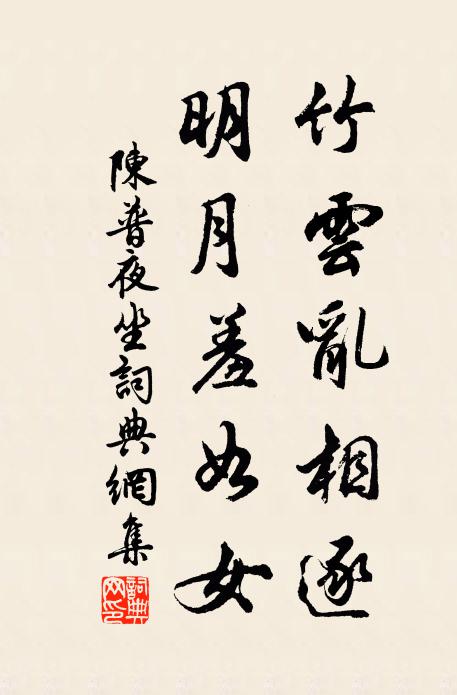 竹雲亂相逐
明月羞如女
陳普夜坐詞典網集
詞典網印